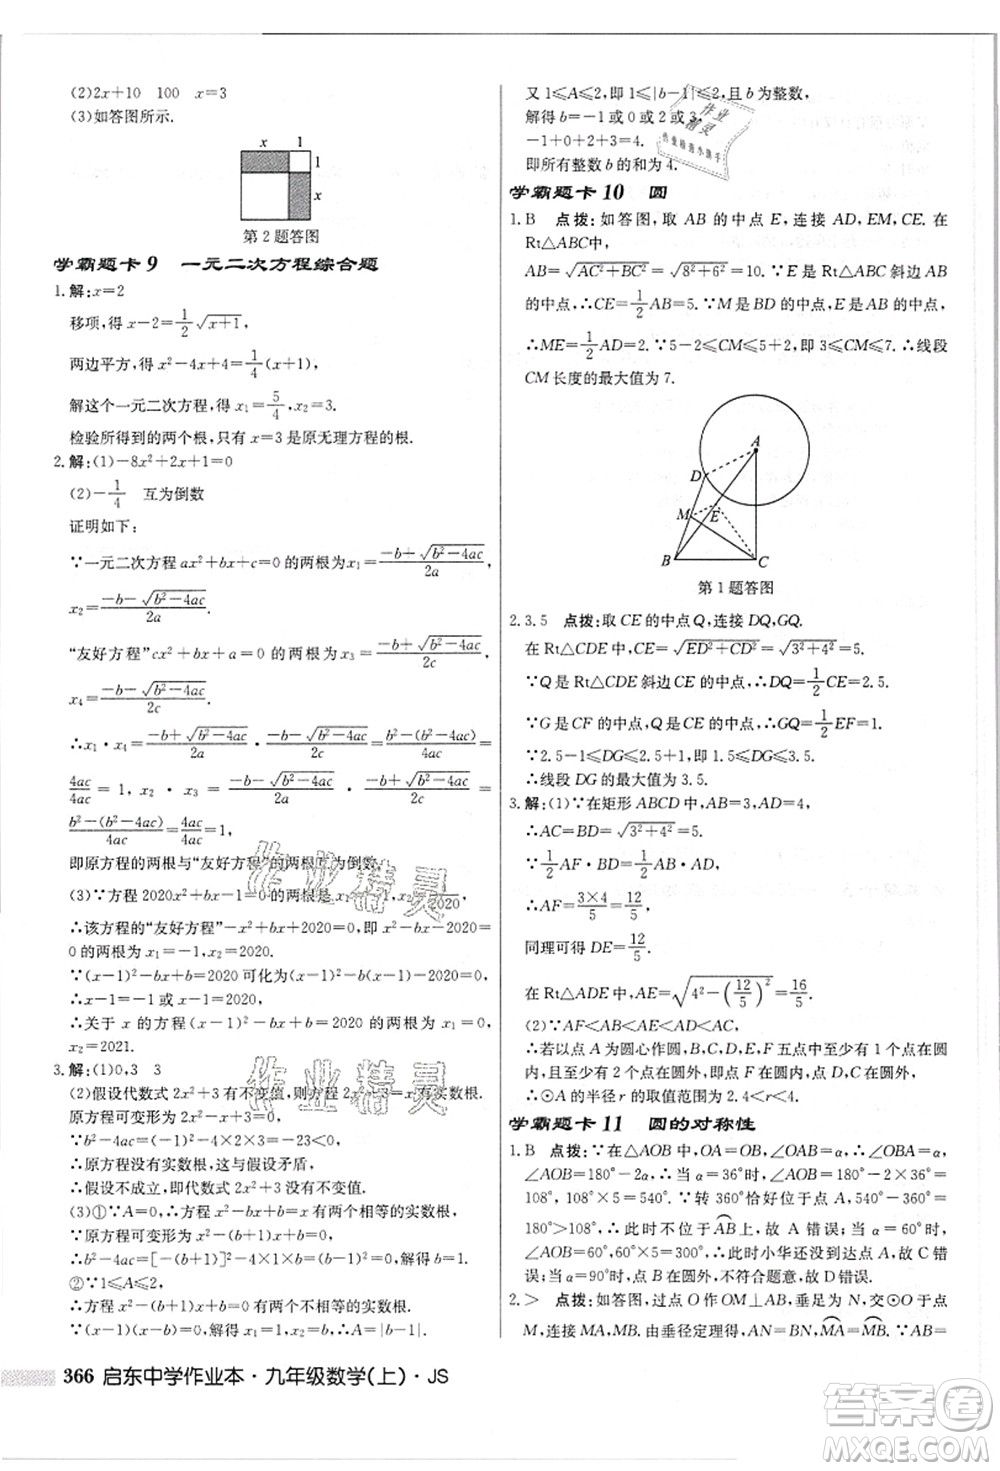 (2)2x+10　100　x=3
(3)如答图所示.
x　1
1
x
第2题答图
学霸题卡9　一元二次方程综合题
1.解:x=2
移项,得 x−2=1/2 √(x+1),
两边平方,得 x²−4x+4=1/4(x+1),
解这个一元二次方程,得 x₁=5/4,x₂=3.
检验所得到的两个根,只有 x=3是原无理方程的根.
2.解:(1)−8x²+2x+1=0
(2)−1/4　互为倒数
证明如下:
∵一元二次方程 ax²+bx+c=0 的两根为 x₁=(−b+√(b²−4ac))/2a,
x₂=(−b−√(b²−4ac))/2a.
“友好方程”cx²+bx+a=0 的两根为 x₃=(−b+√(b²−4ac))/2c,
x₄=(−b−√(b²−4ac))/2c.
∴x₁·x₄=(−b+√(b²−4ac))/2a·(−b−√(b²−4ac))/2c=(b²−(b²−4ac))/4ac=
4ac/4ac=1, x₂·x₃=(−b−√(b²−4ac))/2a·(−b+√(b²−4ac))/2c=
(b²−(b²−4ac))/4ac=4ac/4ac=1,
即原方程的两根与“友好方程”的两根互为倒数.
(3)∵方程 2020x²+bx−1=0 的两根是 x₁=−1,x₂=1/2020,
∴该方程的“友好方程”−x²+bx+2020=0,即 x²−bx−2020=
0 的两根为 x₁=−1,x₂=2020.
∵(x−1)²−bx+b=2020 可化为(x−1)²−b(x−1)−2020=0,
∴x−1=−1 或 x−1=2020,
∴关于 x 的方程(x−1)²−bx+b=2020 的两根为 x₁=0,
x₂=2021.
3.解:(1)0,3　3
(2)假设代数式 2x²+3 有不变值,则方程 2x²+3=x 有实数根.
原方程可变形为 2x²−x+3=0.
∵b²−4ac=(−1)²−4×2×3=−23<0,
∴该方程无解,即该方程没有实数根,
∴假设不成立,即代数式 2x²+3 没有不变值.
(3)①∵A=0,∴方程 x²−bx=x 有两个相等的实数根.
原方程可变形为 x²−(b+1)x=0,
∴b²−4ac=[−(b+1)]²−4×1×0=0,解得 b=−1.
②∵1⩽A⩽2,
∴方程 x²−(b+1)x=0 有两个不相等的实数根.
∵(x−b)(x−1)−b=0,解得 x₁=0,x₂=b+1,∴A=|b+1|.
又 1⩽A⩽2,即 1⩽|b−1|⩽2,且 b 为整数,
解得 b=−1 或 0 或 2 或 3,
−1+0+2+3=4.
即所有整数 b 的和为 4.
学霸题卡10　圆
1.B　点拨:如答图,取 AB 的中点 E,连接 AD,EM,CE. 在
Rt△ABC中,
AB=√(AC²+BC²)=√(8²+6²)=10. ∵E 是 Rt△ABC 斜边
AB 的中点,∴CE=1/2AB=5. ∵M 是 BD 的中点,E 是 AB 的中点,
∴ME=1/2AD=2. ∵5−2⩽CM⩽5+2,即 3⩽CM⩽7. ∴线段
CM 长度的最大值为 7.
A
D
M
E
B　C
第1题答图
2.3.5　点拨:取 CE 的中点 Q,连接 DQ,GQ.
在 Rt△CDE 中,EC=√(ED²+CD²)=√(3²+4²)=5.
∵Q 是 Rt△CDE 斜边 CE 的中点,∴DQ=1/2CE=2.5.
∵G 是 CF 的中点,Q 是 CE 的中点,∴GQ=1/2EF=1.
∵2.5−1⩽DG⩽2.5+1,即 1.5⩽DG⩽3.5.
∴线段 DG 的最大值为 3.5.
3.解:(1)∵在矩形 ABCD 中,AB=3,AD=4,
∴AC=BD=√(3²+4²)=5.
∵1/2AF·BD=1/2AB·AD,
∴AF=3×4/5=12/5,
同理可得 DE=12/5.
在 Rt△ADE 中,AE=√(4²−(12/5)²)=16/5.
(2)∵AF<AB<AE<AD<AC,
∴若以点 A 为圆心作圆,B,C,D,E,F 五点中至少有 1 个点在圆
内,且至少有 2 个点在圆外,即点 F 在圆内,点 D,C 在圆外,
∴⊙A 的半径 r 的取值范围为 2.4<r<4.
学霸题卡11　圆的对称性
1.B　点拨:∵在△AOB 中,OA=OB,∠OAB=α,∴∠OBA=α,
∠AOB=180°−2α. ∴当 α=36°时,∠AOB=180°−2×36°=
108°,108°×5=540°. ∵转 360°恰好行走一圈,540°−360°=
180°>108°,∴此时不位于AB上,故 A 错误;当 α=60°时,
∠AOB=60°,60°×5=300°,∴此时小华还未走完一圈,故 C
错误;当 α=90°时,点 B 在圆外,不符合题意,故 D 错误.
2.>　点拨:如答图,过点 O 作 OM⊥AB,垂足为 N,交⊙O 于点
M,连接MA,MB. 由垂径定理,得AN=BN,MA=MB. ∵AB=
366 启东中学作业本·九年级数学(上)·JS
作业精灵
作业检查小能手
作业精灵
作业精灵
答案圈
MXQE.COM